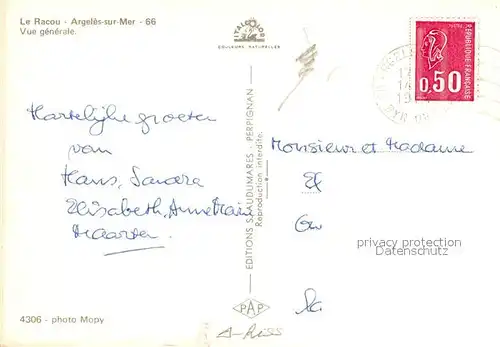 Le Racou - Argelès-sur-Mer - 66
Vue générale.
ITALCOLOR
COULEURS NATURELLES
POSTES
RÉPUBLIQUE FRANÇAISE
0,50
Hartelijke groeten
van
Hans, Sandra
Elisabeth, Anne Marie
Maarten.
EDITIONS S. AUDUMARES - PERPIGNAN
Reproduction interdite.
Monsieur et Madame
privacy protection
copyright protection
PAP
4306 - photo Mopy